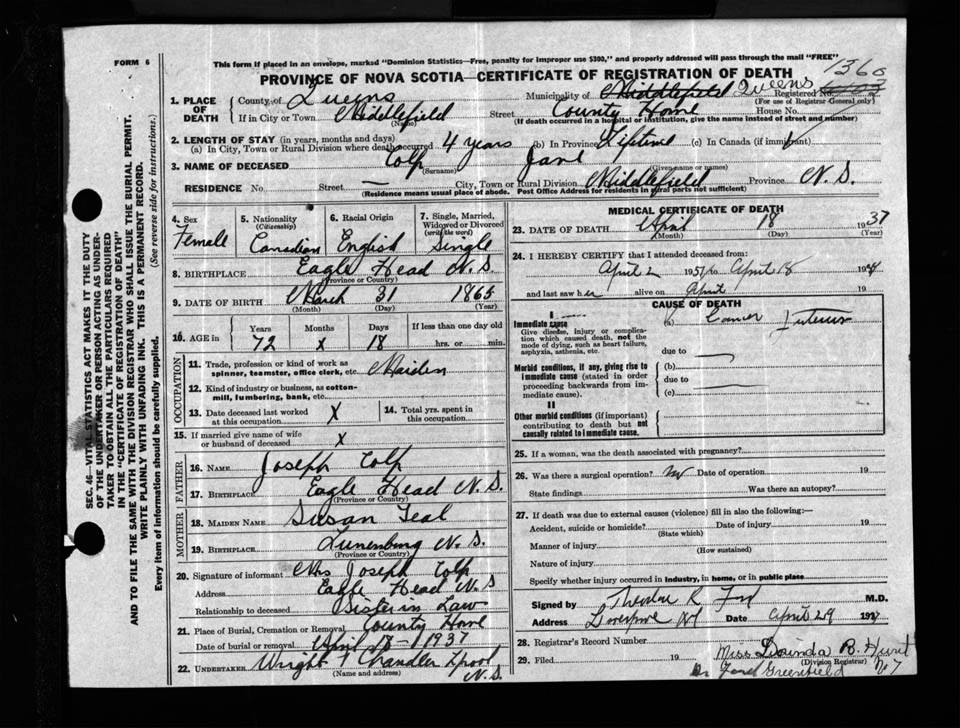 FORM 6
This form if placed in an envelope, marked "Dominion Statistics—Free, penalty for improper use $300," and properly addressed will pass through the mail "FREE"
PROVINCE OF NOVA SCOTIA—CERTIFICATE OF REGISTRATION OF DEATH
1360
1. PLACE OF DEATH
County of Queens
Municipality of Middlefield Queens
Registered No.
(For use of Registrar General only)
If in City or Town Middlefield
(Name)
Street County Home House No.
(If death occurred in a hospital or institution, give the name instead of street and number)
2. LENGTH OF STAY (in years, months and days)
(a) In City, Town or Rural Division where death occurred 4 years (b) In Province Lifetime (c) In Canada (if immigrant)
3. NAME OF DECEASED Colp Jane
(Surname) (Given name or names)
RESIDENCE No. Street — City, Town or Rural Division Middlefield Province N. S.
(Residence means usual place of abode. Post Office Address for residents in rural parts not sufficient)
4. Sex Female
5. Nationality (Citizenship) Canadian
6. Racial Origin English
7. Single, Married, Widowed or Divorced (write the word) Single
8. BIRTHPLACE Eagle Head N. S.
(Province or Country)
9. DATE OF BIRTH March 31 1865
(Month) (Day) (Year)
10. AGE in
Years Months Days If less than one day old
72 x 18 hrs. or min.
OCCUPATION
11. Trade, profession or kind of work as spinner, teamster, office clerk, etc. Maiden
12. Kind of industry or business, as cotton-mill, lumbering, bank, etc.
13. Date deceased last worked at this occupation X
14. Total yrs. spent in this occupation
15. If married give name of wife or husband of deceased X
FATHER
16. NAME Joseph Colp
17. BIRTHPLACE Eagle Head N. S.
(Province or Country)
MOTHER
18. MAIDEN NAME Susan Teal
19. BIRTHPLACE Lunenburg N. S.
(Province or Country)
20. Signature of informant Mrs Joseph Colp
Address Eagle Head N. S
Relationship to deceased Sister in Law
21. Place of Burial, Cremation or Removal County Home
Date of burial or removal April 1937
22. UNDERTAKER Wright & Chandler Lpool N. S.
(Name and address)
MEDICAL CERTIFICATE OF DEATH
23. DATE OF DEATH April 18 1937
(Month) (Day) (Year)
24. I HEREBY CERTIFY that I attended deceased from:
April 2 to April 18 19
and last saw her alive on April 19
CAUSE OF DEATH
I
Immediate cause
Give disease, injury or complication which caused death, not the mode of dying, such as heart failure, asphyxia, asthenia, etc.
(a) Cancer Uterus
due to
Morbid conditions, if any, giving rise to immediate cause (stated in order proceeding backwards from immediate cause).
(b)
due to
(c)
II
Other morbid conditions (if important) contributing to death but not causally related to immediate cause.
25. If a woman, was the death associated with pregnancy?
26. Was there a surgical operation? no Date of operation 19
State findings Was there an autopsy?
27. If death was due to external causes (violence) fill in also the following:—
Accident, suicide or homicide? Date of injury 19
(State which)
Manner of injury
(How sustained)
Nature of injury
Specify whether injury occurred in industry, in home, or in public place
Signed by Theodore R Ford M.D.
Address Liverpool NS Date April 29 1937
28. Registrar's Record Number
29. Filed 19 Miss Dorinda B. Hunt
(Division Registrar)
Greenfield No 7
SEC. 46—VITAL STATISTICS ACT MAKES IT THE DUTY OF THE UNDERTAKER OR PERSON ACTING AS UNDERTAKER TO OBTAIN ALL THE PARTICULARS REQUIRED IN THE "CERTIFICATE OF REGISTRATION OF DEATH" AND TO FILE THE SAME WITH THE DIVISION REGISTRAR WHO SHALL ISSUE THE BURIAL PERMIT.
WRITE PLAINLY WITH UNFADING INK. THIS IS A PERMANENT RECORD.
Every item of information should be carefully supplied. (See reverse side for instructions.)